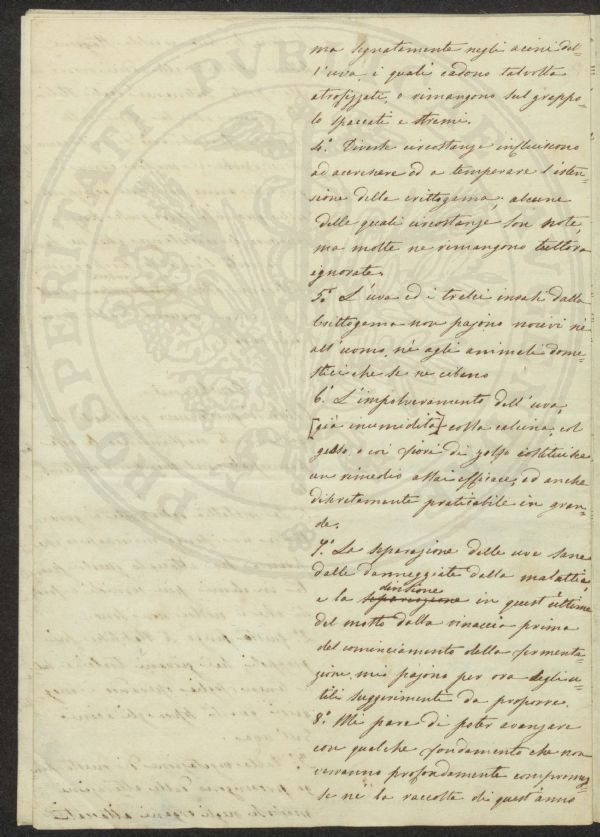 ma segnatamente negli acini del-
l'uva, i quali cadono talvolta
atrofizzati, o rimangono sul grappo-
lo spaccati e stremi.
4.° Diverse circostanze influiscono
ad accrescere ed a temperare l'esten-
sione della crittogama; alcune
delle quali circostanze son note,
ma molte ne rimangono tuttora
ignorate.
5.° L'uva ed i tralci invasi dalla
Crittogama non pajono nocivi nè
all'uomo, nè agli animali dome-
stici che se ne cibano
6.° L'impolveramento dell'uva,
[già inumidita] colla calcina, col
gesso, o coi fiori di zolfo costituisce
un rimedio assai efficace, ed anche
discretamente praticabile in gran-
de.
7.° La separazione delle uve sane
dalle danneggiate dalla malattia,
divisione
e la separazione in quest'ultime
del mosto dalla vinaccia prima
del cominciamento della fermenta-
zione, mi pajono per ora degli u-
tili suggerimenti da proporre.
8.° Mi pare di poter avanzare
con qualche fondamento che non
verranno profondamente compromes-
se nè la raccolta di quest'anno
PROSPERITATI PVBLI